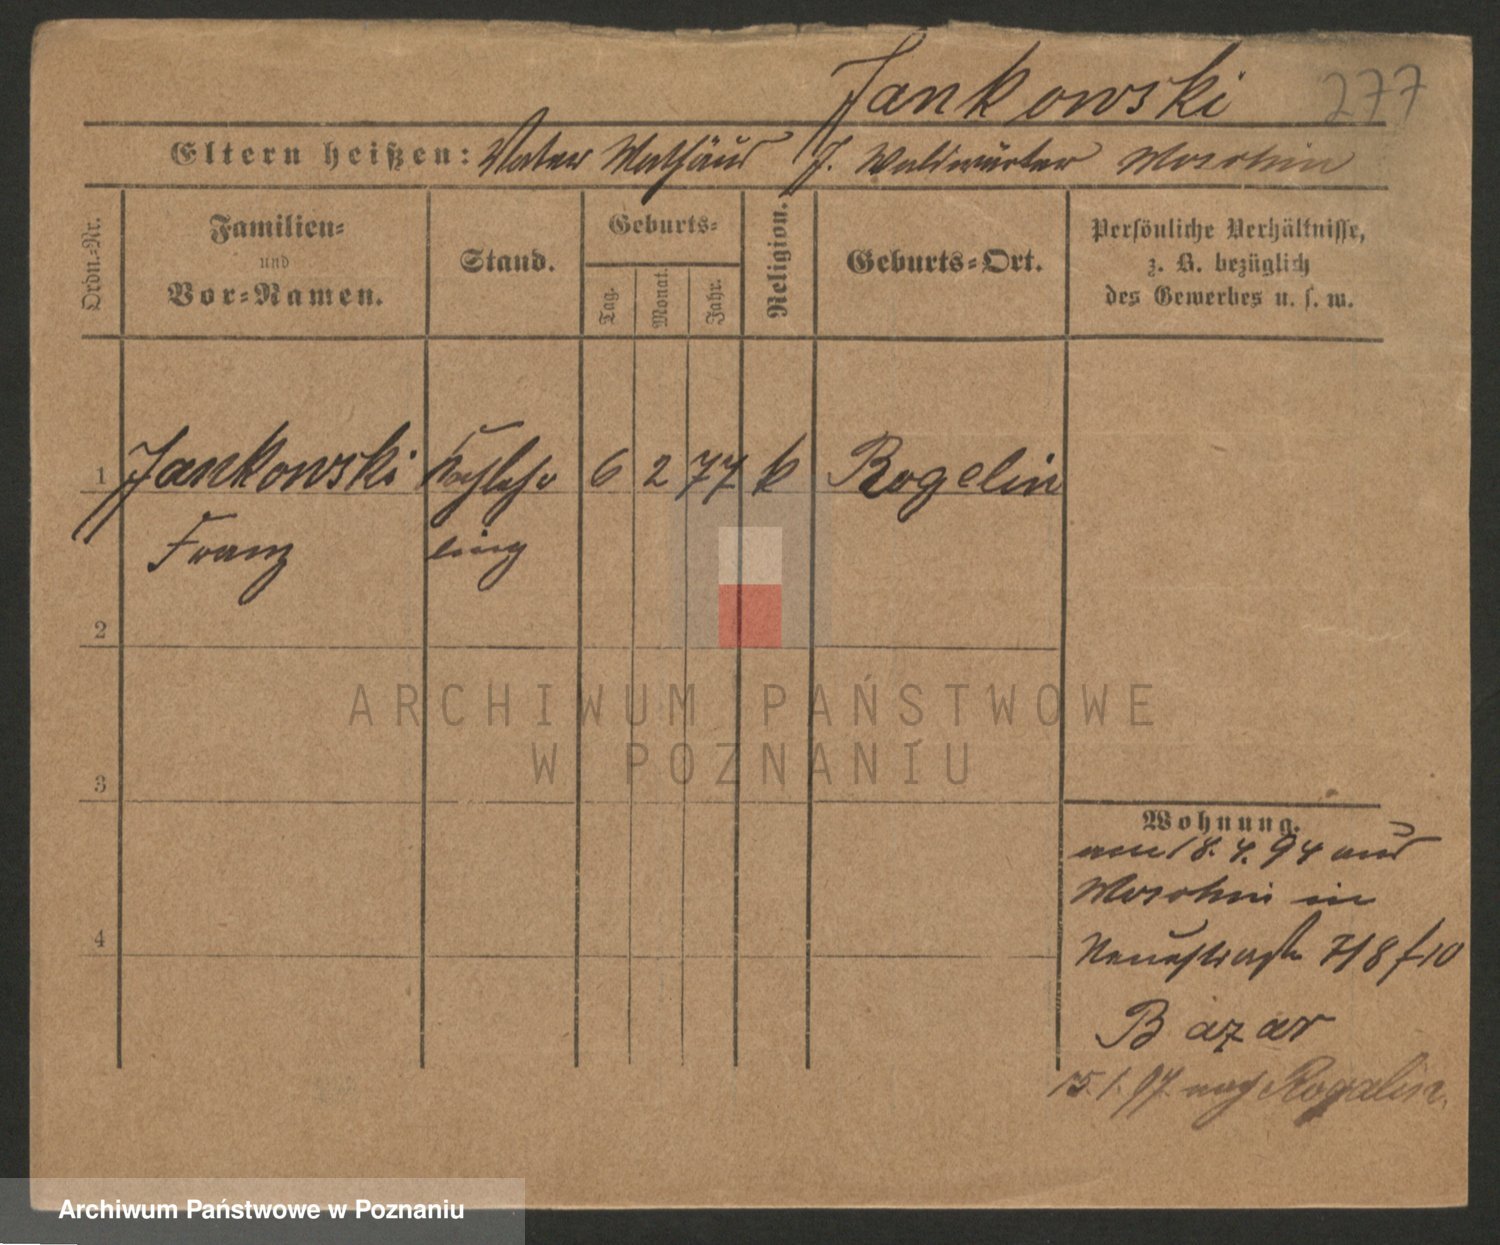 Jankowski 277
Eltern heißen: Vater Mathäus J. Waldwärter Moschin
Ordn.-Nr.
Familien-
und
Vor-Namen.
Stand.
Geburts-
Tag.
Monat.
Jahr.
Religion.
Geburts-Ort.
Persönliche Verhältnisse,
z. B. bezüglich
des Gewerbes u. s. w.
1 Jankowski Kochlehr 6 2 77 k Rogelin
Franz ling
2
3
4
Wohnung.
am 18. 4. 94 aus
Moschin in
Neuestraße 7/8 f 10
Bazar
15. 1. 97. nach Rogalin.
ARCHIWUM PAŃSTWOWE
W POZNANIU
Archiwum Państwowe w Poznaniu